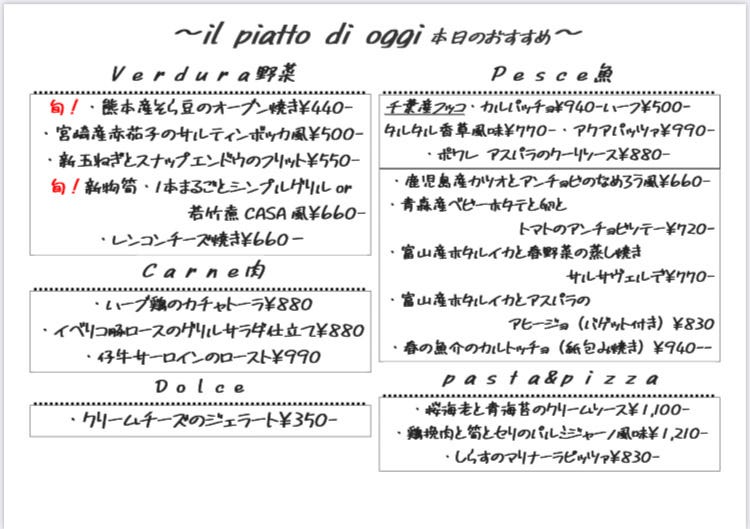 ～il piatto di oggi 本日のおすすめ～
Verdura野菜
旬！・熊本産そら豆のオーブン焼き¥440-
・宮崎産赤茄子のサルティンボッカ風¥500-
・新玉ねぎとスナップエンドウのフリット¥550-
旬！新物筍・1本まるごとシンプルグリル or
若竹煮 CASA 風¥660-
・レンコンチーズ焼き¥660-
Carne肉
・ハーブ鶏のカチャトーラ¥880
・イベリコ豚ロースのグリルサラダ仕立て¥880
・仔牛サーロインのロースト¥990
Dolce
・クリームチーズのジェラート¥350-
Pesce魚
千葉産フッコ・カルパッチョ¥940-ハーフ¥500-
タルタル香草風味¥770-・アクアパッツァ¥990-
・ポワレ アスパラのクーリソース¥880-
・鹿児島産カツオとアンチョビのなめろう風¥660-
・青森産ベビーホタテと卵と
トマトのアンチョビソテー¥720-
・富山産ホタルイカと春野菜の蒸し焼き
サルサヴェルデ¥770-
・富山産ホタルイカとアスパラの
アヒージョ（バゲット付き）¥830
・春の魚介のカルトッチョ（紙包み焼き）¥940--
pasta&pizza
・桜海老と青海苔のクリームソース¥1,100-
・鶏挽肉と筍とセリのパルミジャーノ風味¥1,210-
・しらすのマリナーラピッツァ¥830-